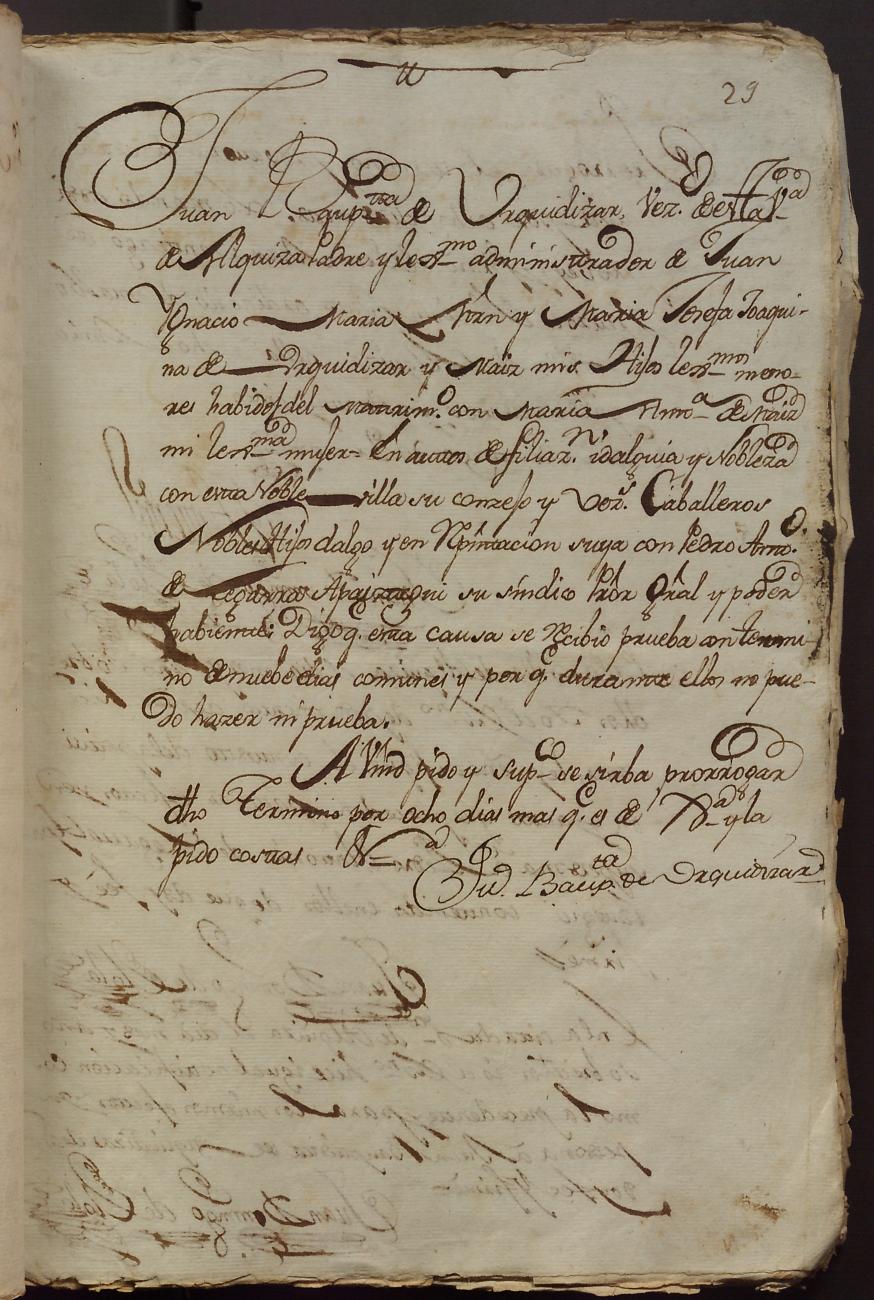 29
Juan Baup.tta de Urquidizar, Vez.o de esta V.a
de Alquiza Padre y lex.mo administrador de Juan
Ygnacio Maria Antn y Maria Teresa Joaqui-
na de Urquidizar y Maiz mis Hijos lex.mos meno-
res habidos del matrim.o con Maria Ant.a de Maiz
mi lex.ma muger= En autos de filiaz.n idalguia y Nobleza
con esta Noble villa su conzejo y Vez.s Caballeros
Nobles Hijos dalgo y en Rpñtacion suya con Pedro Anto.
de su sindico Prõr Grãl y poder
habiente: Digo q. esta causa se Rcibio prueba con termi-
no de nuebe dias comunes y por q. durante ellos no pue-
do hazer mi prueba.
A Vmd pido y sup.co se sirba prorrogar
dho Termino por ocho dias mas q. es de Jus.a y la
pido costas &.a
Ju.n Baup.ta de Urquidizar